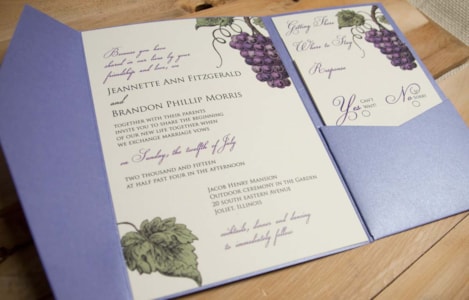 Because you have
shared in our lives by your
friendship and love, we
Jeannette Ann Fitzgerald
and
Brandon Phillip Morris
together with their parents
invite you to share the beginning
of our new life together when
we exchange marriage vows
on Sunday, the twelfth of July
two thousand and fifteen
at half past four in the afternoon
Jacob Henry Mansion
Outdoor ceremony in the Garden
20 South Eastern Avenue
Joliet, Illinois
cocktails, dinner and dancing
to immediately follow
Getting There
Where to Stay
Response
Yes can't wait! No